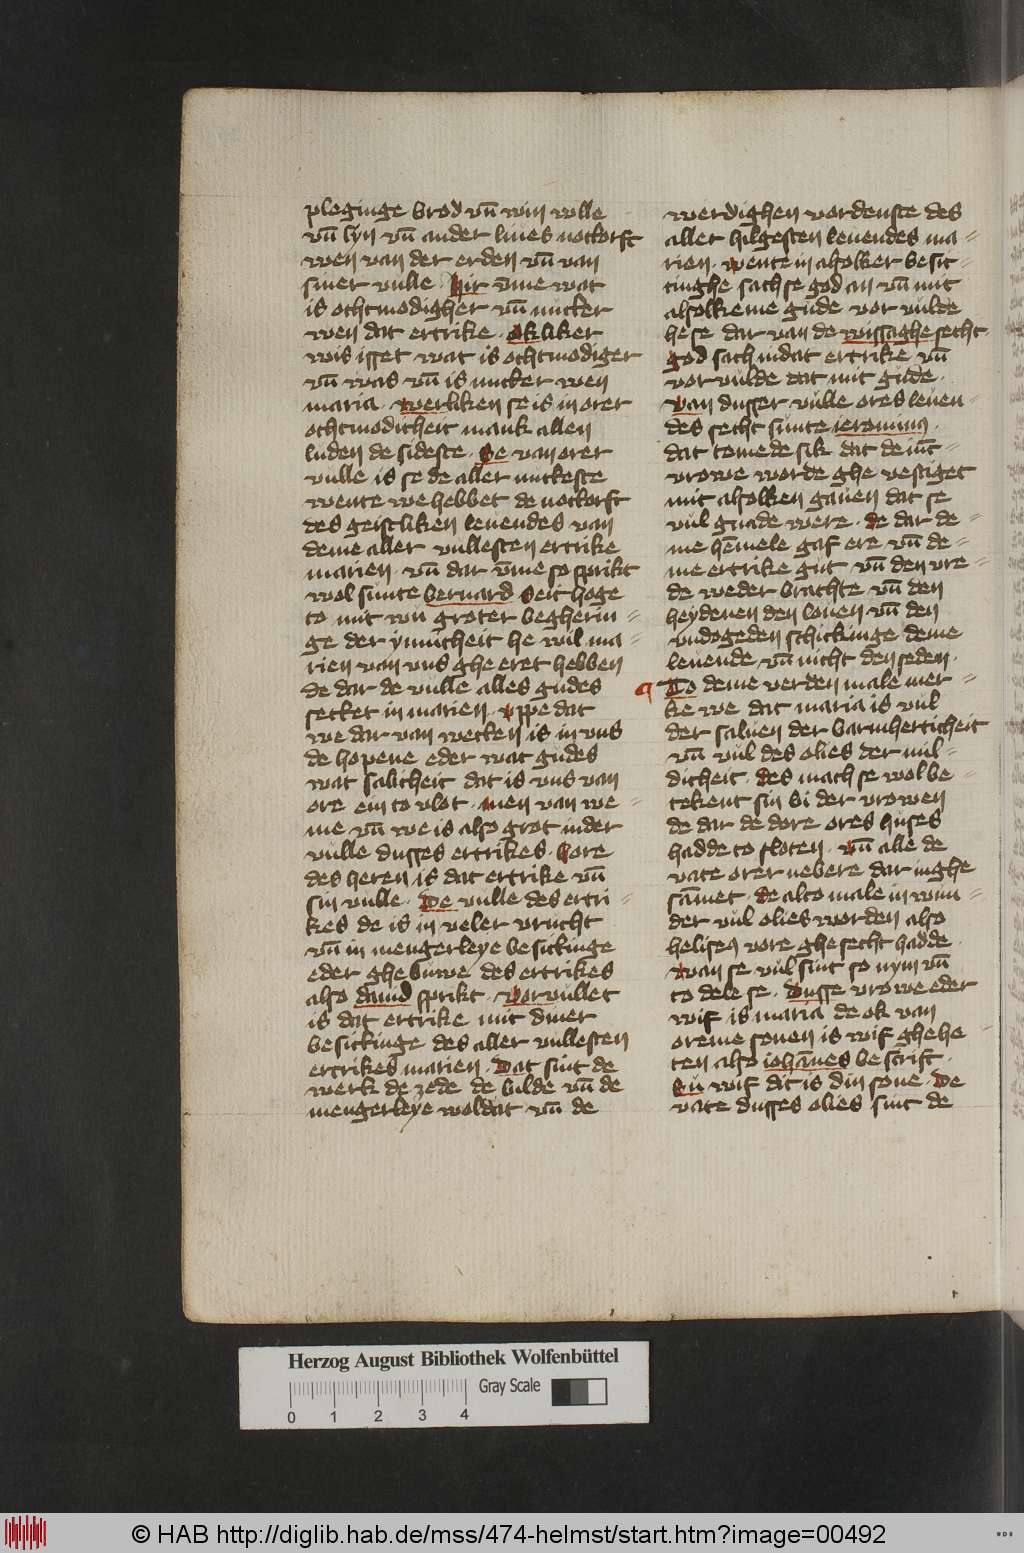 pleginge brod vn̄ win wlle
vn̄ lyn vn̄ ander liues notdorft
wen van der erden vn̄ van
siner vulle · hir v̄me wat
is othmodigher vn̄ nutter
wen dat ertrike · ok liker
wis isset wat is othmodiger
vn̄ was vn̄ is nutter wen
maria · werliken se is in orer
othmodicheit mank allen
luden de sideste · Se van orer
vulle is se de aller nutteste
wente we hebbet de notdorft
des geistliken leuendes van
deme aller vullesten ertrike
marien · vn̄ dar v̄me so sprikt
wol sunte bernard Seit hoge
to mit wu groter begherin=
ge der ynnicheit he wil ma=
rien van vns ghe eret hebben
de dar de vulle alles gudes
settet in marien · vppe dat
we dar van wetten is in vns
de hopene eder wat gudes
wat salicheit dat is vns van
ore ein to vlot · Men van we=
me vn̄ we is also grot in der
vulle dusses ertrikes · hore
des heren is dat ertrike vn̄
sin vulle · De vulle des ertri=
kes de is in veler vrucht
vn̄ in mengerleye besittinge
eder ghe buwe des ertrikes
also dauid sprikt · Vorvullet
is dat ertrike mit diner
besittinge des aller vullesten
ertrikes marien · Dat sint de
werk de zede de bilde vn̄ de
mengerleye woldat vn̄ de
werdighen vordenste des
aller hilgesten leuendes ma=
rien · wente in alsolker besit=
tinghe sach se god an vn̄ mit
alsolkeme gude vor vulde
he se dar van de wissaghe secht
god sach in dat ertrike vn̄
vor vulde dat mit gude ·
Van dusser vulle ores leuen=
des secht sunte ieronimꝯ ·
dat tomede sik dat de iūt=
vrowe worde ghe vestiget
mit alsolken gauen dat se
vul gnade were · de dar de=
me hēmele gaf ere vn̄ de=
me ertrike gut vn̄ den vre=
de weder brachte vn̄ den
heydenen den louen vn̄ den
vndogeden schickinge deme
leuende vn̄ nicht den seden ·
To deme verden male mer=
ke we dat maria is vul
der saluen der barmherticheit
vn̄ vul des olies der mil=
dicheit · des mach se wol be=
tekent sin bi der vrowen
de dar de dore ores huses
hadde to sloten · vn̄ alle de
vate orer nebere dar in ghe
sāmet · de alto male in wun=
der vul olies worden also
heliseꝯ vore ghe secht hadde ·
wan se vul sint so nym vn̄
to dele se · Dusse vrowe eder
wif is maria de ok van
oreme sonen is wif ghehe=
ten also iohānes bescrift ·
Sū wif dit is din sone · De
vate dusses olies sint de
Herzog August Bibliothek Wolfenbüttel
Gray Scale
0 1 2 3 4
© HAB http://diglib.hab.de/mss/474-helmst/start.htm?image=00492
WDB